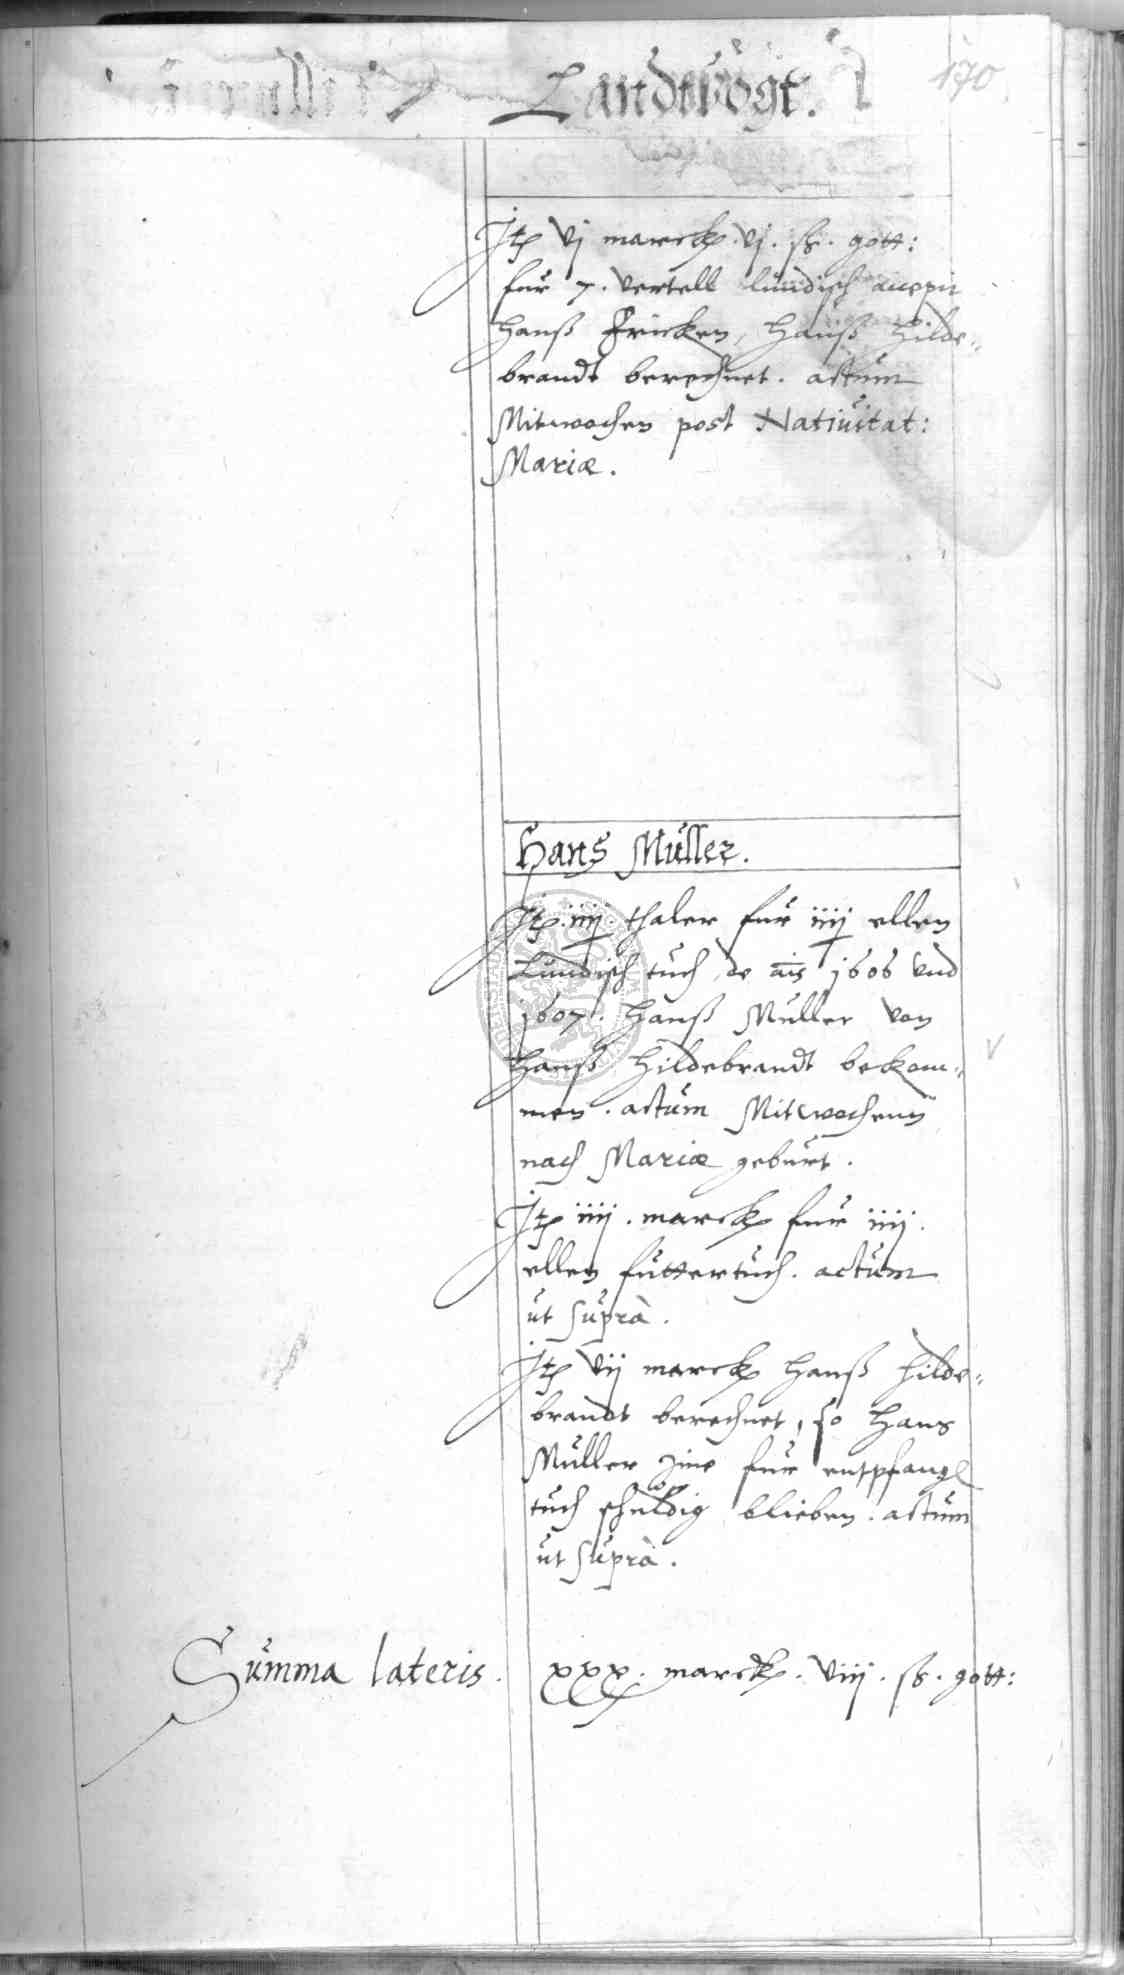 Landtvögt.
190
Itē vj marck. vj. ß. gott:
fur 7. vertell lundisch
Hanß Fricken, Hanß Hilde-
brandt berechnet. actum
Mitwochen post Natiuitat:
Mariæ.
Hans Müller.
Itē. iiij thaler fur iiij ellen
Lundisch tuch, de aīs 1606 vnd
1607. Hanß Müller von
Hanß Hildebrandt bekom-
men. actum Mitwochenn
nach Mariæ geburt.
Itē iiij. marck fur iiij.
ellen futtertuch. actum
ut suprà.
Itē vij marck Hanß Hilde-
brandt berechnet, so Hans
Müller fur entpfang
tuch schuldig blieben. actum
ut suprà.
Summa lateris. xxx. marck. viij. ß. gott: